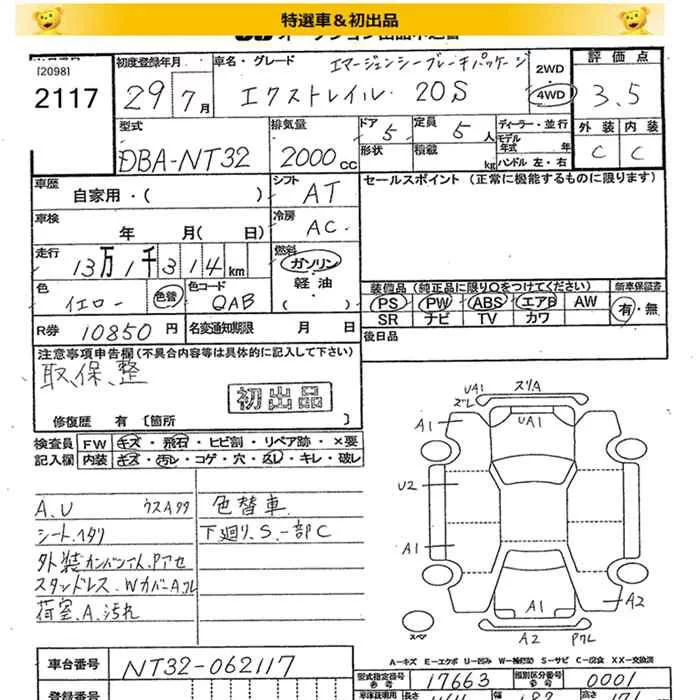 特選車＆初出品
[2098]
2117
初度登録年月
29年 7月
車名・グレード
エマージェンシーブレーキパッケージ
エクストレイル 20S
2WD
4WD
評価点
3.5
外装 内装
C C
型式
DBA-NT32
排気量
2000cc
ドア
5
形状
定員
5人
積載
kg
ディーラー・並行
モデル年式 年
ハンドル 左・右
車歴
自家用・( )
シフト
AT
セールスポイント (正常に機能するものに限ります)
車検
年 月( 日)
冷房
AC
走行
13万1千314km
燃料
ガソリン
軽油
( )
色
イエロー
色替
色コード
QAB
装備品 (純正品に限り○をつけてください)
PS PW ABS エアB AW
SR ナビ TV カワ
新車保証書
有・無
R券 10850円
名変通知期限 月 日
後日品
注意事項申告欄(不具合内容等は具体的に記入して下さい)
取、保、整
初出品
修復歴 有 [箇所 ]
検査員
記入欄
FW キズ・飛石・ヒビ割・リペア跡・×要
内装 キズ・汚レ・コゲ・穴・スレ・キレ・破レ
A.U ウスAタタ
シート.ヘタリ
スタンドレス.WカバーA.
荷室.A.汚れ
色替車
下廻り、S.一部C
UA1
ズレ
スリA
UA1
A1
U2
A1
A1
A2
A2
スペア
A－キズ E－エクボ U－凹み W－補修跡 S－サビ C－腐食 XX－交換済
車台番号
NT32-062117
型式指定番号
参考
17663
類別区分番号
参考
0001
登録番号
車検証明用
参考
長さ
幅
高さ